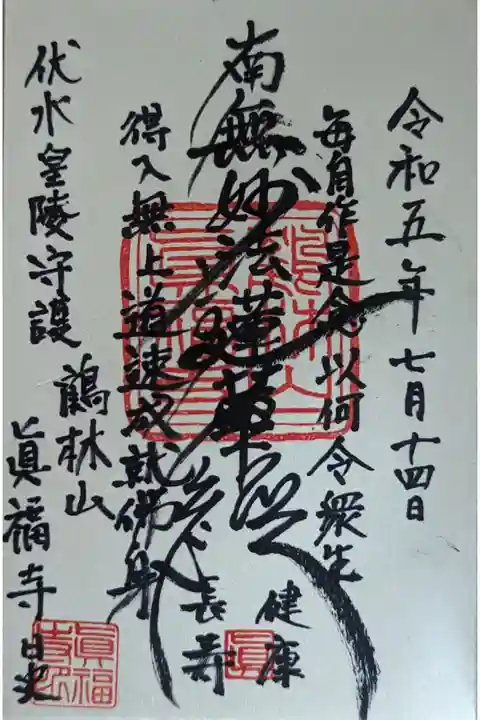 令和五年七月十四日
毎自作是念以何令衆生
健康
南無妙法蓮華経
長寿
得入無上道速成就佛身
伏水皇陵守護
鶴林山
眞福寺
眞福